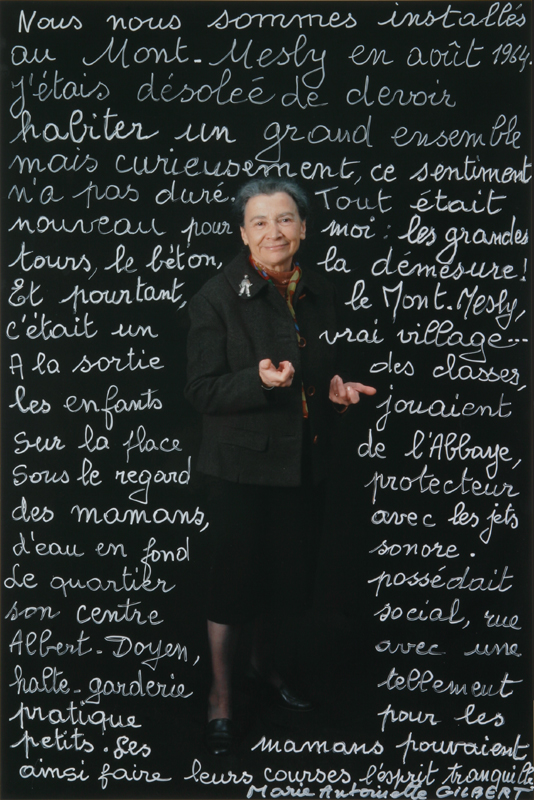 Nous nous sommes installés
au Mont-Mesly en août 1964.
j'étais désolée de devoir
habiter un grand ensemble
mais curieusement, ce sentiment
n'a pas duré. Tout était
nouveau pour moi : les grandes
tours, le béton, la démesure!
Et pourtant, le Mont-Mesly,
c'était un vrai village...
A la sortie des classes,
les enfants jouaient
sur la place de l'Abbaye,
sous le regard protecteur
des mamans, avec les jets
d'eau en fond sonore.
Le quartier possédait
son centre social, rue
Albert-Doyen, avec une
halte-garderie tellement
pratique pour les
petits. Les mamans pouvaient
ainsi faire leurs courses, l'esprit tranquille
Marie Antoinette GILBERT